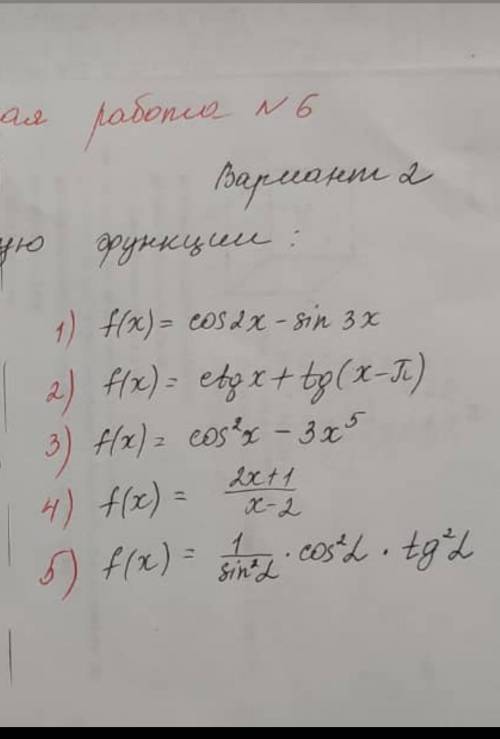 ая работа N 6
Вариант 2
ую функции:
1) f(x) = cos2x - sin 3x
2) f(x) = ctgx + tg(x-π)
3) f(x) = cos²x - 3x⁵
4) f(x) = \frac{2x+1}{x-2}
5) f(x) = \frac{1}{sin²α} · cos²α · tg²α